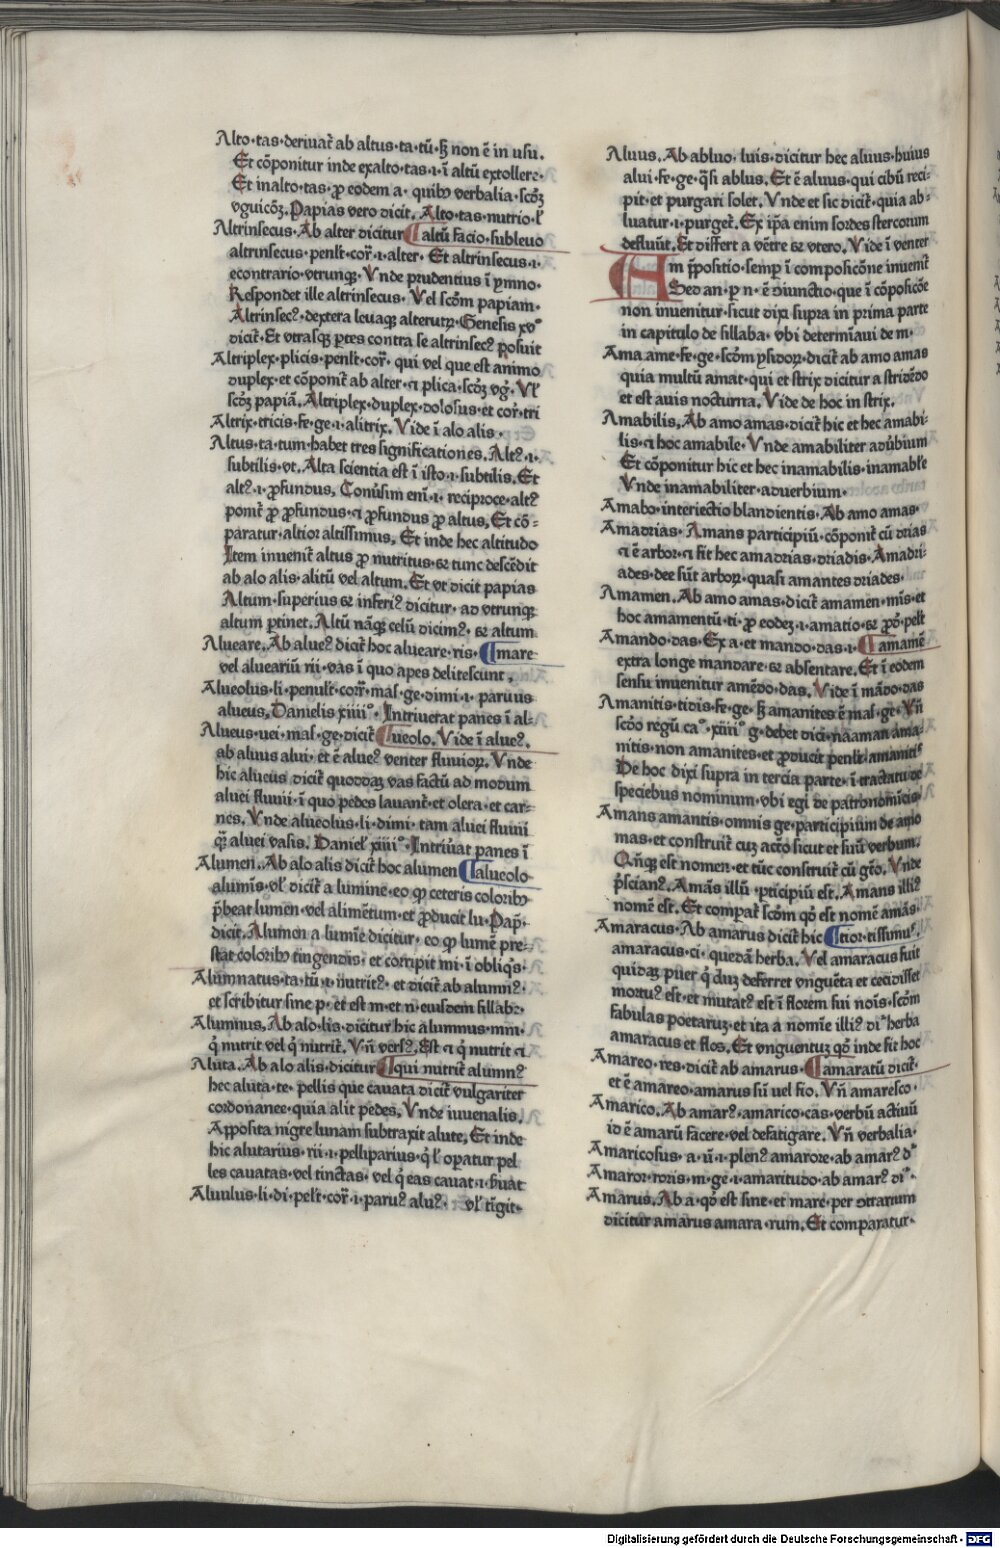 Alto·tas·deriuat᷑ ab altus·ta·tū·ꝫ non ē in usu.
Et cōponitur inde exalto·tas·i·ī altū extollere·
Et inalto·tas·ꝓ eodem a· quibꝰ verbalia·scōꝫ
vguicōꝫ. Papias vero dicit. Alto·tas·nutrio·ł
Altrinsecus·Ab alter dicitur ¶ altū facio·subleuo
altrinsecus·penłt·cor᷑·i·alter· Et altrinsecus·i·
econtrario·vtrunqꝫ· Vnde prudentius ī ymno·
Respondet ille altrinsecus· Vel scōm papiam·
Altrinsecꝰ·dextera leuaqꝫ alterutrꝝ·Genesis xv°
dicit᷑·Et vtrasqꝫ ptes contra se altrinsecꝰ posuit
Altriplex·plicis·penłt·cor᷑· qui vel que est animo
duplex·et cōponit᷑ ab alter·⁊ plica·scōꝫ vg᷑· Vł
scōꝫ papiā. Altriplex·duplex·dolosus·et cor᷑·tri
Altrix·tricis·fe·ge·i·alitrix. Vide ī alo alis·
Altus·ta·tum·habet tres significationes. Altꝰ·i·
subtilis·vt. Alta scientia est ī isto·i·subtilis. Et
altꝰ·i·ꝓfundus. Conūsim eni᷑·i· reciproce·altꝰ
ponit᷑ ꝓ ꝓfundus·⁊ ꝓfundus ꝓ altus. Et cō=
paratur·altior altissimus. Et inde hec altitudo
Item inuenit᷑ altus ꝓ nutritus·⁊ tunc descēdit
ab alo alis·alitū vel altum. Et vt dicit papias
Altum·superius ⁊ inferiꝰ dicitur· ad vtrunqꝫ
altum ptinet. Altū nāqꝫ celū dicimꝰ· ⁊ altum
Alueare. Ab alueꝰ dicit᷑ hoc alueare·ris· ¶ mare
vel alueariū rii·vas ī quo apes delitescunt.
Alueolus·li·penult᷑·corr᷑·mas᷑·ge·dimi·i·paruus
alueus. Danielis xiiii°· Intriuerat panes ī al=
Alueus·uei·mas᷑·ge·dicit᷑ ¶ ueolo. Vide ī alueꝰ.
ab aluus alui·et ē alueꝰ venter fluuioꝝ. Vnde
hic alueus dicit᷑ quoddaꝫ vas factū ad modum
aluei fluuii·ī quo pedes lauant᷑·et olera·et car=
nes. Vnde alueolus·li·dimi·tam aluei fluuii
qꝫ aluei vasis. Daniel᷑ xiiii°·Intriuat panes ī
Alumen. Ab alo alis dicit᷑ hoc alumen ¶ alueolo
alumīs·vł dicit᷑ a lumine·eo ꝙ ceteris coloribꝰ
p̄beat lumen·vel alimētum·et ꝓducit lu·Pap᷑·
dicit. Alumen a lumīe dicitur·eo ꝙ lumē pre=
stat coloribꝰ tingendis·et corripit mi·ī obliqꝰs·
Alumnatus·ta·tū·i·nutritꝰ· et dicit᷑ ab alumnꝰ·
et scribitur sine p·et est m·et n·eiusdem sillabe·
Alumnus. Ab alo·lis·dicitur hic alumnus·mni·
q̇ nutrit vel q̇ nutrit᷑. Vn̄ versꝰ. Est ⁊ q̇ nutrit ⁊
Aluta. Ab alo alis·dicitur ¶ qui nutrit᷑ alumnꝰ
hec aluta·te· pellis que cauata dicit᷑ vulgariter
cordonanee·quia alit pedes. Vnde iuuenalis.
Apposita nigre lunam subtraxit alute. Et inde
hic alutarius·rii·i·pelliparius·q̇ ł opatur pel
les cauatas·vel tinctas· vel q̇ eas cauat·i·fuat
Aluulus·li·di·penłt·cor᷑·i·paruꝰ aluꝰ· vł tīgit·
Aluus. Ab abluo·luis·dicitur hec aluus·huius
alui·fe·ge·q̄si ablus. Et ē aluus·qui cibū reci=
pit·et purgari solet. Vnde et sic dicit᷑·quia ab=
luatur·i·purget᷑. Ex ip̄a enim sordes stercorum
defluūt. Et differt a vētre ⁊ vtero. Vide ī venter
Am p̄positio·semp ī composicōne inuenit᷑
Sed an·p n·ē diunctio·que ī cōposicōe
non inuenitur·sicut dixi supra in prima parte
in capitulo de sillaba·vbi determīaui de m·
Ama ame·fe·ge·scōm ysidoꝝ·dicit᷑ ab amo amas
quia multū amat·qui et strix dicitur a stridēdo
et est auis nocturna. Vide de hoc in strix.
Amabilis. Ab amo amas·dicit᷑ hic et hec amabi=
lis·⁊ hoc amabile· Vnde amabiliter adūbium
Et cōponitur hic et hec inamabilis·inamable
Vnde inamabiliter·aduerbium·
Amabo·interiectio blandientis·Ab amo amas·
Amadrias· Amans participiū·cōponit᷑ cū drias
⁊ ē arbor·⁊ fit hec amadrias·driadis·Amadri=
ades·dee sūt arboꝝ·quasi amantes driades·
Amamen. Ab amo amas·dicit᷑ amamen·mīs·et
hoc amamentū·ti·ꝓ eodeꝫ·i·amatio·⁊ ꝓꝺ᷑·pełt
Amando·das·Ex a·et mando·das·i· ¶ amamē
extra longe mandare·⁊ absentare. Et ī eodem
sensu inuenitur amēdo·das. Vide ī mādo·das
Amanitis·tidis·fe·ge·ꝫ amanites ē mas᷑·ge· Vn̄
scōo regū ca°·xiiii° g·debet dici·naaman ama=
nitis·non amanites·et ꝓducit penłt·amanitiꝰ
De hoc dixi supra in tercia parte·ī tractatu de
speciebus nominum·vbi egi de patronomicis
Amans amantis·omnis ge·participium de amo
mas·et construit᷑ cuꝫ actō sicut et suū verbum.
Qn̄qꝫ est nomen·et tūc construit᷑ cū gtō. Vnde
p̄scianꝰ. Amās illū·pticipiū est. Amans illiꝰ
nomē est. Et comparat᷑ scōm qꝺ est nomē amās·
Amaracus·Ab amarus dicit᷑ hic ¶ tior·tissimuꝰ.
amaracus·ci· quedā herba. Vel amaracus fuit
quidaꝫ puer q̇ duꝫ deferret vnguēta et cecidisset
mortuꝰ est·et mutatꝰ est ī florem sui nois·scōm
fabulas poetaruꝫ·et ita a nomīe illiꝰ diᷓ herba
amaracus et flos. Et vnguentuꝫ qꝺ inde fit hoc
Amareo·res·dicit᷑ ab amarus· ¶ amaratū dicit᷑·
et ē amareo·amarus sū vel fio. Vn̄ amaresco·
Amarico. Ab amarꝰ·amarico·cas·verbū actiuū
id ē amarū facere·vel defatigare. Vn̄ verbalia·
Amaricosus·a·ū·i·plenꝰ amarore·ab amarꝰ dᷓ
Amaror·roris·m·ge·i·amaritudo·ab amarꝰ diᷓ·
Amarus. Ab a·qꝺ est sine·et mare·per ↄtrarium
dicitur amarus amara·rum. Et comparatur·
Digitalisierung gefördert durch die Deutsche Forschungsgemeinschaft - DFG